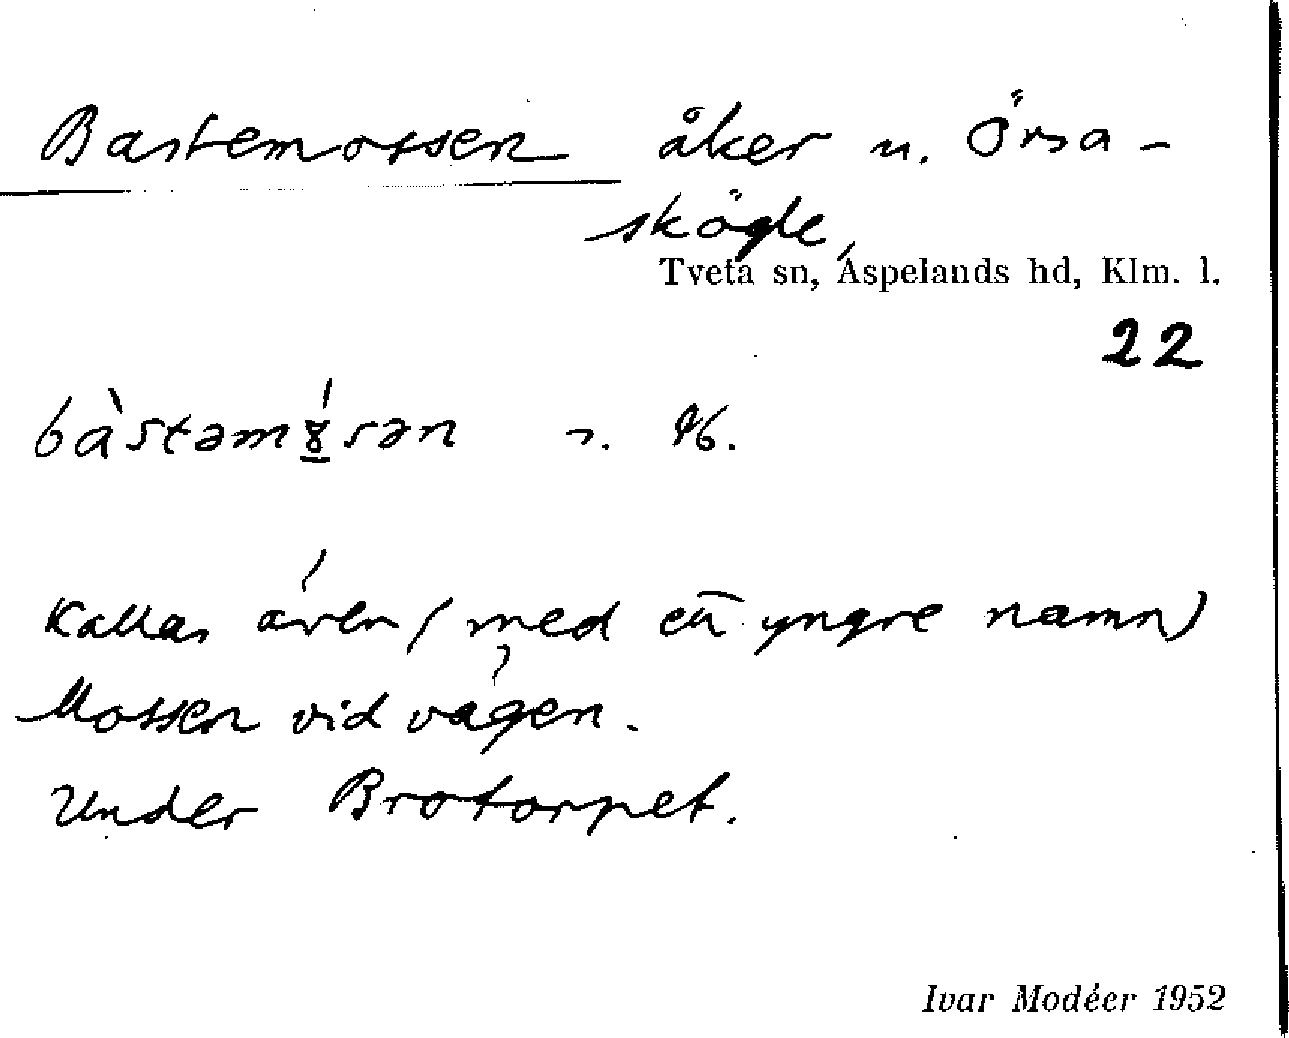 Bastemossen åker u. Örsa-
skögle,
Tveta sn, Aspelands hd, Klm. l.
22
bàstəmɤ́sən
Kallas även (med ett yngre namn)
Mossen vid vägen.
Under Brotorpet.
Ivar Modéer 1952